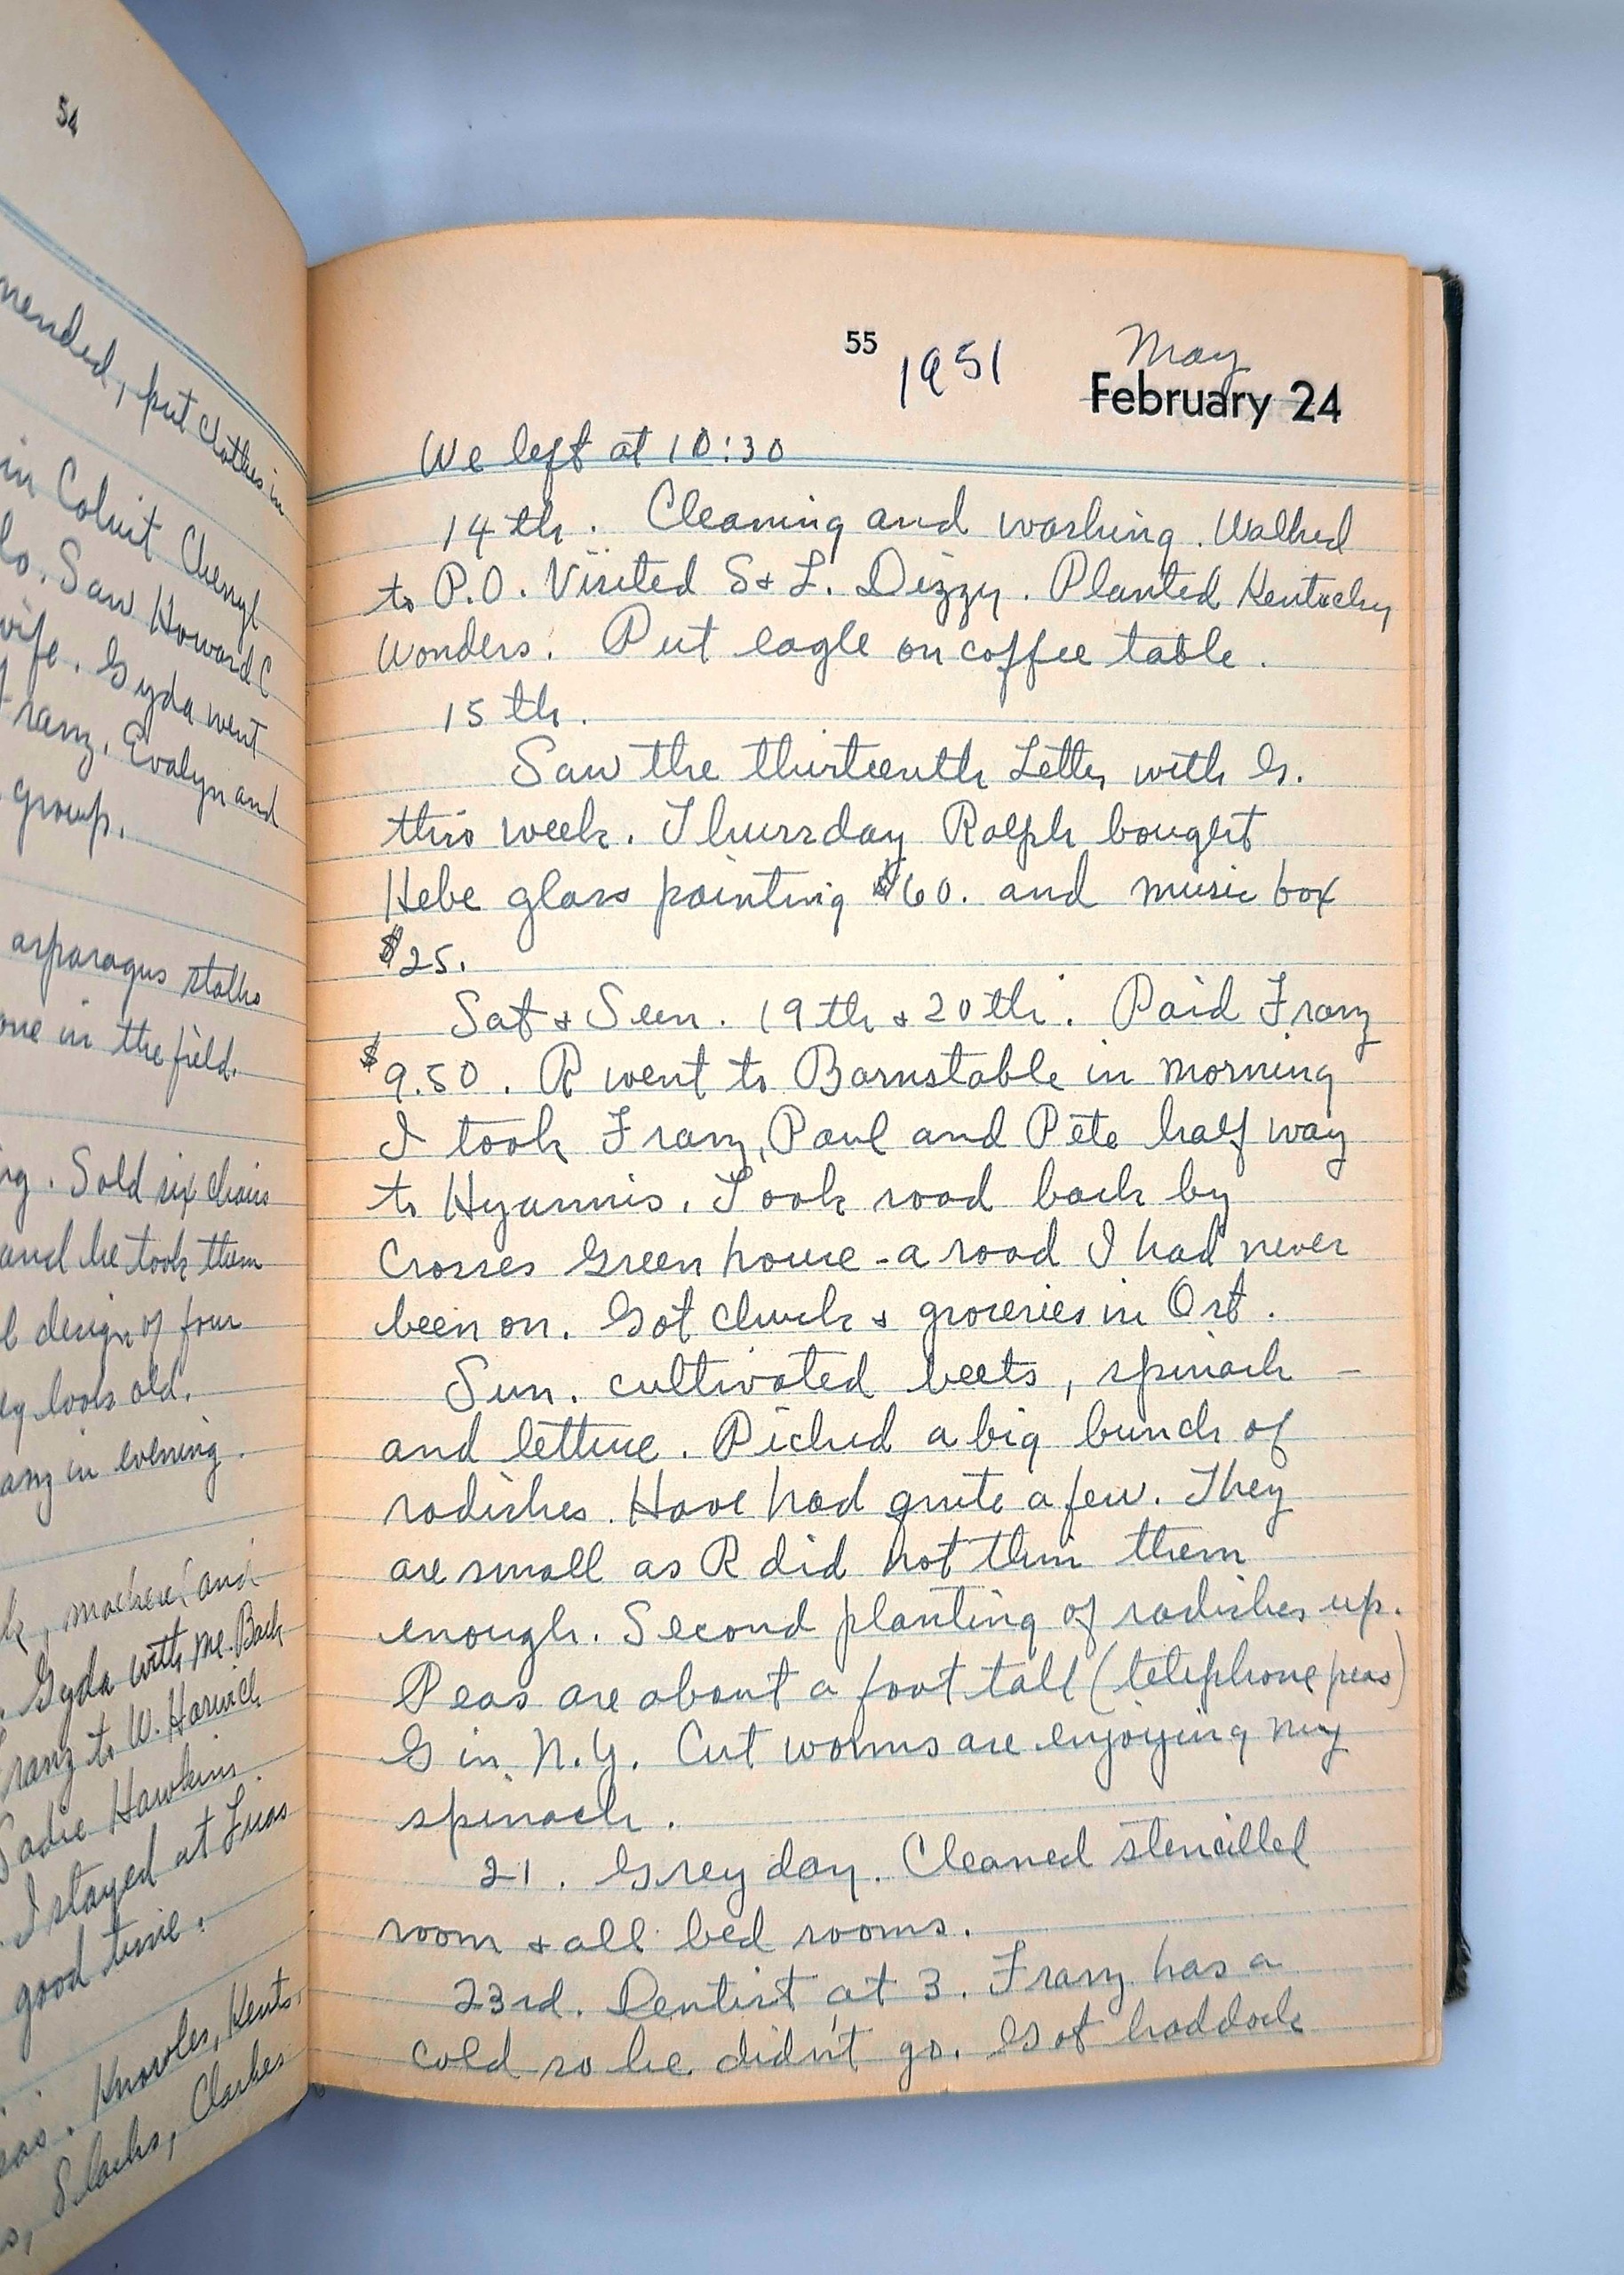 54
mended, put clothes in
in Coluit Cheryl
Saw Howard C
wife. Gyda went
Franz, Evalyn and
group.
asparagus stalks
one in the field.
Sold six chairs
and he took them
design of four
look old.
in evening.
and
Gyda with me. Back
Franz to W. Harwich
Sadie Hawkins
I stayed at
good time.
Knowles, Kents,
Slacks, Clarkes
55
1951
May
February 24
We left at 10:30
14th. Cleaning and washing. Walked
to P.O. Visited S & L. Dizzy. Planted Kentucky
Wonders. Put eagle on coffee table.
15th.
Saw the thirteenth Letter with G.
this week. Thursday Ralph bought
Hebe glass painting $60. and music box
$25.
Sat & Sun. 19th & 20th. Paid Franz
$9.50. R went to Barnstable in morning
I took Franz, Paul and Pete half way
to Hyannis. Took road back by
Crosses Green house - a road I had never
been on. Got chuck & groceries in Ost.
Sun. cultivated beets, spinach -
and lettuce. Picked a big bunch of
radishes. Have had quite a few. They
are small as R did not thin them
enough. Second planting of radishes up.
Peas are about a foot tall (telephone peas)
G in N.Y. Cut worms are enjoying my
spinach.
21. Grey day. Cleaned stencilled
room & all bed rooms.
23rd. Dentist at 3. Franz has a
cold so he didn't go. Got haddock